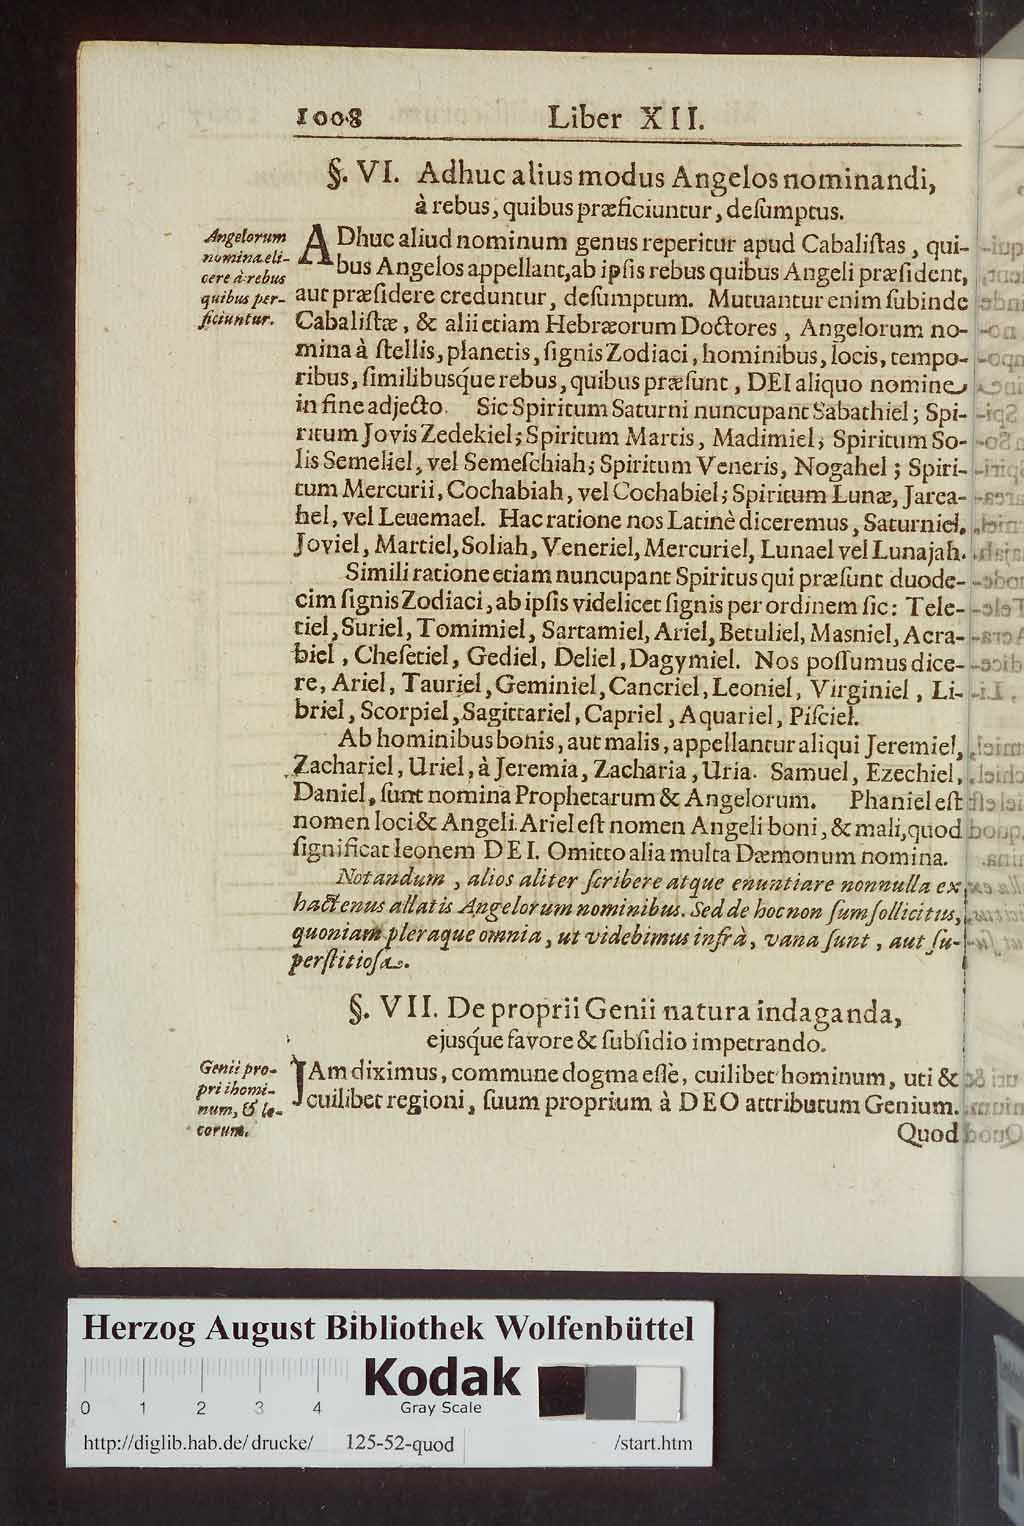 1008 Liber XII.
§. VI. Adhuc alius modus Angelos nominandi,
à rebus, quibus præficiuntur, deſumptus.
Angelorum
nomina eli-
cere à rebus
quibus per-
ficiuntur.
ADhuc aliud nominum genus reperitur apud Cabaliſtas, qui-
bus Angelos appellant, ab ipſis rebus quibus Angeli præſident,
aut præſidere creduntur, deſumptum. Mutuantur enim ſubinde
Cabaliſtæ, & alii etiam Hebræorum Doctores, Angelorum no-
mina à ſtellis, planetis, ſignis Zodiaci, hominibus, locis, tempo-
ribus, ſimilibusq́ue rebus, quibus præſunt, DEI aliquo nomine
in fine adjecto. Sic Spiritum Saturni nuncupant Sabathiel; Spi-
ritum Jovis Zedekiel; Spiritum Martis, Madimiel; Spiritum So-
lis Semeliel, vel Semeſchiah; Spiritum Veneris, Nogahel; Spiri-
tum Mercurii, Cochabiah, vel Cochabiel; Spiritum Lunæ, Jarea-
hel, vel Leuemael. Hac ratione nos Latinè diceremus, Saturniel,
Joviel, Martiel, Soliah, Veneriel, Mercuriel, Lunael vel Lunajah.
Simili ratione etiam nuncupant Spiritus qui præſunt duode-
cim ſignis Zodiaci, ab ipſis videlicet ſignis per ordinem ſic: Tele-
tiel, Suriel, Tomimiel, Sartamiel, Ariel, Betuliel, Masniel, Acra-
biel, Cheſetiel, Gediel, Deliel, Dagymiel. Nos poſſumus dice-
re, Ariel, Tauriel, Geminiel, Cancriel, Leoniel, Virginiel, Li-
briel, Scorpiel, Sagittariel, Capriel, Aquariel, Piſciel.
Ab hominibus bonis, aut malis, appellantur aliqui Jeremiel,
Zachariel, Uriel, à Jeremia, Zacharia, Uria. Samuel, Ezechiel,
Daniel, ſunt nomina Prophetarum & Angelorum. Phaniel eſt
nomen loci & Angeli. Ariel eſt nomen Angeli boni, & mali, quod
ſignificat leonem DEI. Omitto alia multa Dæmonum nomina.
Notandum, alios aliter ſcribere atque enuntiare nonnulla ex
hactenus allatis Angelorum nominibus. Sed de hoc non ſum ſollicitus,
quoniam pleraque omnia, ut videbimus infrà, vana ſunt, aut ſu-
perſtitioſa.
§. VII. De proprii Genii natura indaganda,
ejusq́ue favore & ſubſidio impetrando.
Genii pro-
prii homi-
num, & lo-
corum.
JAm diximus, commune dogma eſſe, cuilibet hominum, uti &
cuilibet regioni, ſuum proprium à DEO attributum Genium.
Quod
Herzog August Bibliothek Wolfenbüttel
Kodak
Gray Scale
0 1 2 3 4
http://diglib.hab.de/drucke/ 125-52-quod /start.htm